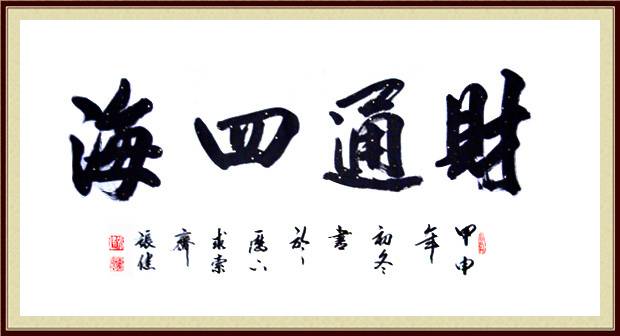 財通四海
甲申年初冬書於歷下求索齋張